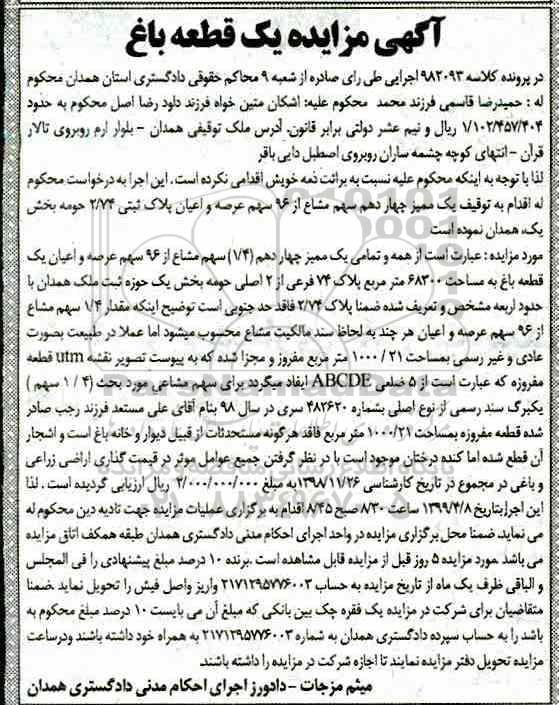 آگهی مزایده یک قطعه باغ
در پرونده کلاسه ۹۸۲۰۹۳ اجرایی طی رای صادره از شعبه ۹ محاکم حقوقی دادگستری استان همدان محکوم
له : حمیدرضا قاسمی فرزند محمد محکوم علیه: اشکان متین خواه فرزند داود رضا اصل محکوم به حدود
۱/۱۰۲/۴۵۷/۴۰۴ ریال و نیم عشر دولتی برابر قانون. آدرس ملک توقیفی همدان - بلوار ارم روبروی تالار
قرآن - انتهای کوچه چشمه ساران روبروی اصطبل دایی باقر
لذا با توجه به اینکه محکوم علیه نسبت به برائت ذمه خویش اقدامی نکرده است . این اجرا به درخواست محکوم
له اقدام به توقیف یک ممیز چهار دهم سهم مشاع از ۹۶ سهم عرصه و اعیان پلاک ثبتی ۲/۷۴ حومه بخش
یک، همدان نموده است
مورد مزایده : عبارت است از همه و تمامی یک ممیز چهار دهم (۱/۴) سهم مشاع از ۹۶ سهم عرصه و اعیان یک
قطعه باغ به مساحت ۶۸۳۰۰ متر مربع پلاک ۷۴ فرعی از ۲ اصلی حومه بخش یک حوزه ثبت ملک همدان با
حدود اربعه مشخص و تعریف شده ضمنا پلاک ۲/۷۴ فاقد حد جنوبی است توضیح اینکه مقدار ۱/۴ سهم مشاع
از ۹۶ سهم عرصه و اعیان هر چند به لحاظ سند مالکیت مشاع محسوب میشود اما عملا در طبیعت بصورت
عادی و غیر رسمی بمساحت ۲۱ / ۱۰۰۰ متر مربع مفروز و مجزا شده که به پیوست تصویر نقشه utm قطعه
مفروزه که عبارت است از ۵ ضلعی ABCDE ایفاد میگردد برای سهم مشاعی مورد بحث (۴ / ۱ سهم )
یکبرگ سند رسمی از نوع اصلی بشماره ۴۸۲۶۲۰ سری در سال ۹۸ بنام آقای علی مستعد فرزند رجب صادر
شده قطعه مفروزه بمساحت ۱۰۰۰/۲۱ متر مربع فاقد هرگونه مستحدثات از قبیل دیوار و خانه باغ است و اشجار
آن قطع شده اما کنده درختان موجود است با در نظر گرفتن جمیع عوامل موثر در قیمت گذاری اراضی زراعی
و باغی در مجموع در تاریخ کارشناسی ۱۳۹۸/۱۱/۲۶ به مبلغ ۲/۰۰۰/۰۰۰/۰۰۰ ریال ارزیابی گردیده است . لذا
این اجرا بتاریخ ۱۳۹۹/۴/۸ ساعت ۸/۳۰ صبح ۸/۴۵ اقدام به برگزاری عملیات مزایده جهت تادیه دین محکوم له
می نماید. ضمنا محل برگزاری مزایده در واحد اجرای احکام مدنی دادگستری همدان طبقه همکف اتاق مزایده
می باشد .مورد مزایده ۵ روز قبل از مزایده قابل مشاهده است .برنده ۱۰ درصد مبلغ پیشنهادی را فی المجلس
و الباقی ظرف یک ماه از تاریخ مزایده به حساب ۲۱۷۱۲۹۵۷۷۶۰۰۳ واریز واصل فیش را تحویل نماید .ضمنا
متقاضیان برای شرکت در مزایده یک فقره چک بین بانکی که مبلغ آن می بایست ۱۰ درصد مبلغ محکوم به
باشد را به حساب سپرده دادگستری همدان به شماره ۲۱۷۱۲۹۵۷۷۶۰۰۳ به همراه خود داشته باشند ودرساعت
مزایده تحویل دفتر مزایده نمایند تا اجازه شرکت در مزایده را داشته باشند.
میثم مزجات - دادورز اجرای احکام مدنی دادگستری همدان